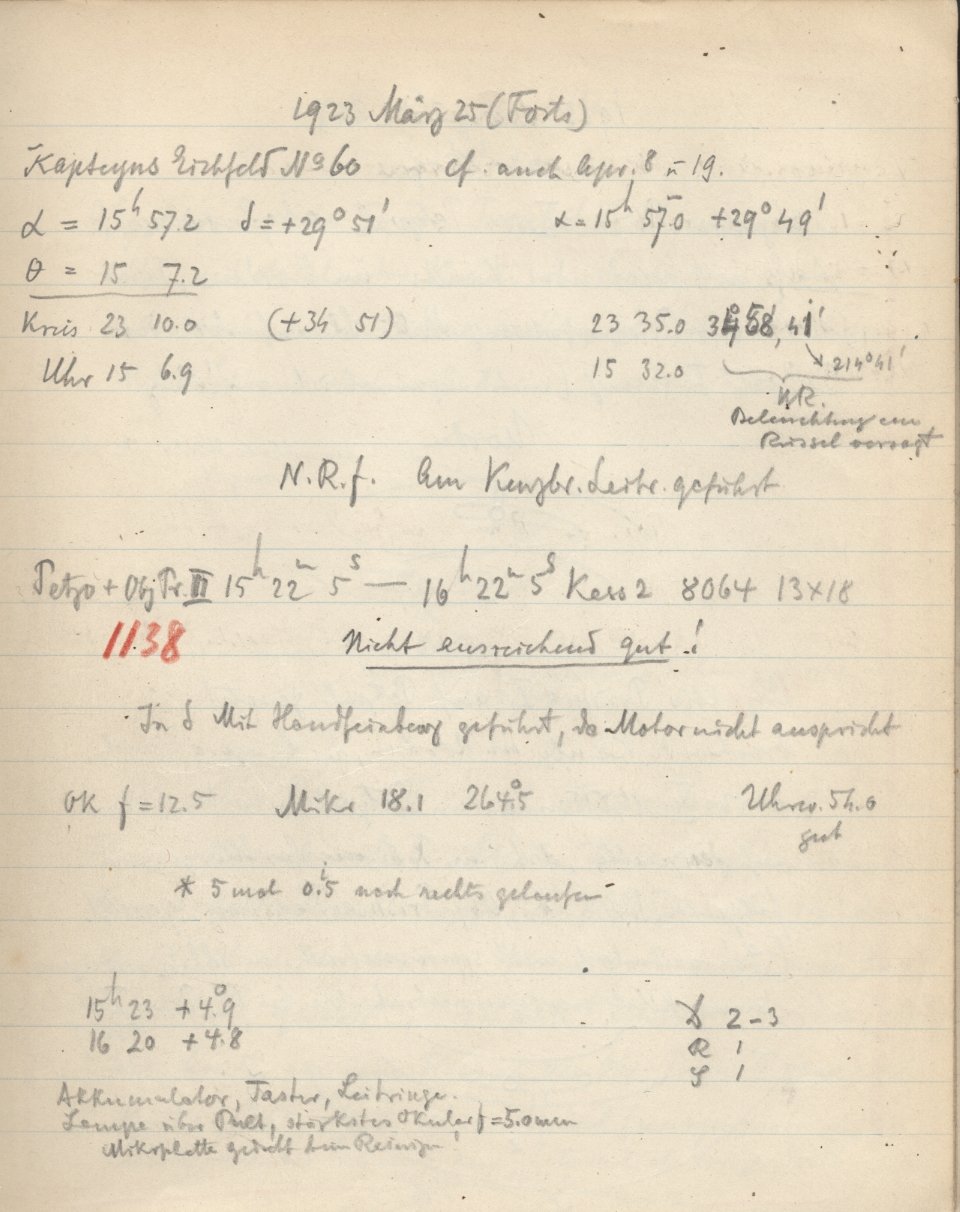 1923 März 25 (Forts)
Kapteyns Eichfeld No 60 cf. auch Apr. 8 u 19.
α = 15h 57.2 δ = +29° 51' α = 15h 57.0 +29° 49'
θ = 15 7.2
Kreis 23 10.0 (+34 51) 23 35.0 41'
Uhr 15 6.9 15 32.0 214° 41'
Beleuchtung am
Rüssel versagt
N.R.f. Am Leitr. geführt
Petzv + Obj Pr. II 15h 22m 5s — 16h 22m 5s Kass 2 8064 13×18
1138 Nicht ausreichend gut !
In δ Mit Handfeinbeweg geführt, da Motor nicht anspricht
OK f = 12.5 Mikr 18.1 264.°5 Uhrw. 54.0
gut
* 5 mal 0.5 nach rechts gelaufen
15h 23 + 4.°9
16 20 + 4.8
D 2-3
R 1
S 1
Akkumulator, Taster, Leitringe.
Lampe über Pult, stärkstes Okular f = 5.0 mm
Mikroplatte beim Reinigen